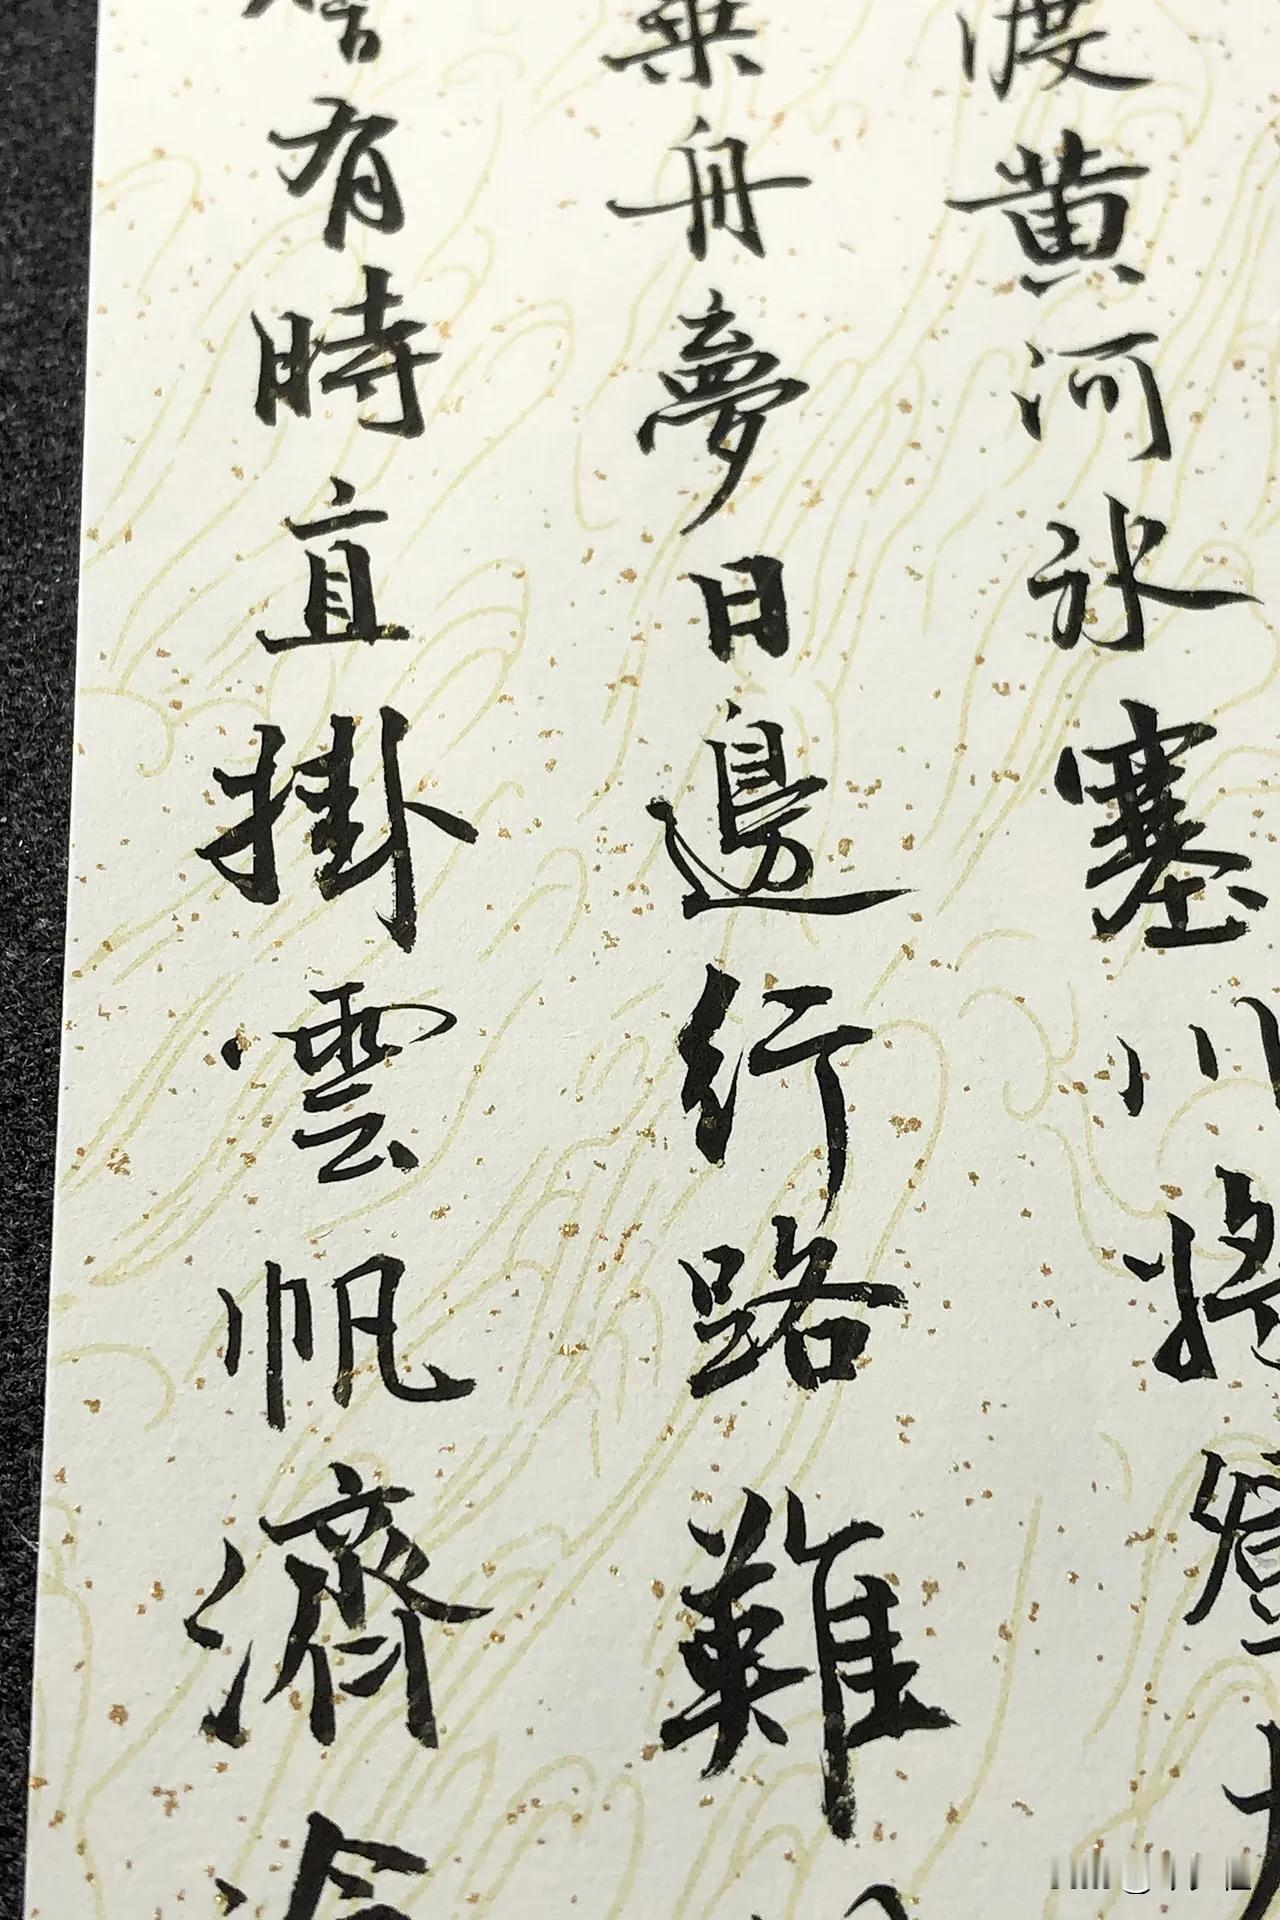 渡黄河冰塞川將登
乘舟夢日邊行路難
會有時直掛雲帆濟滄